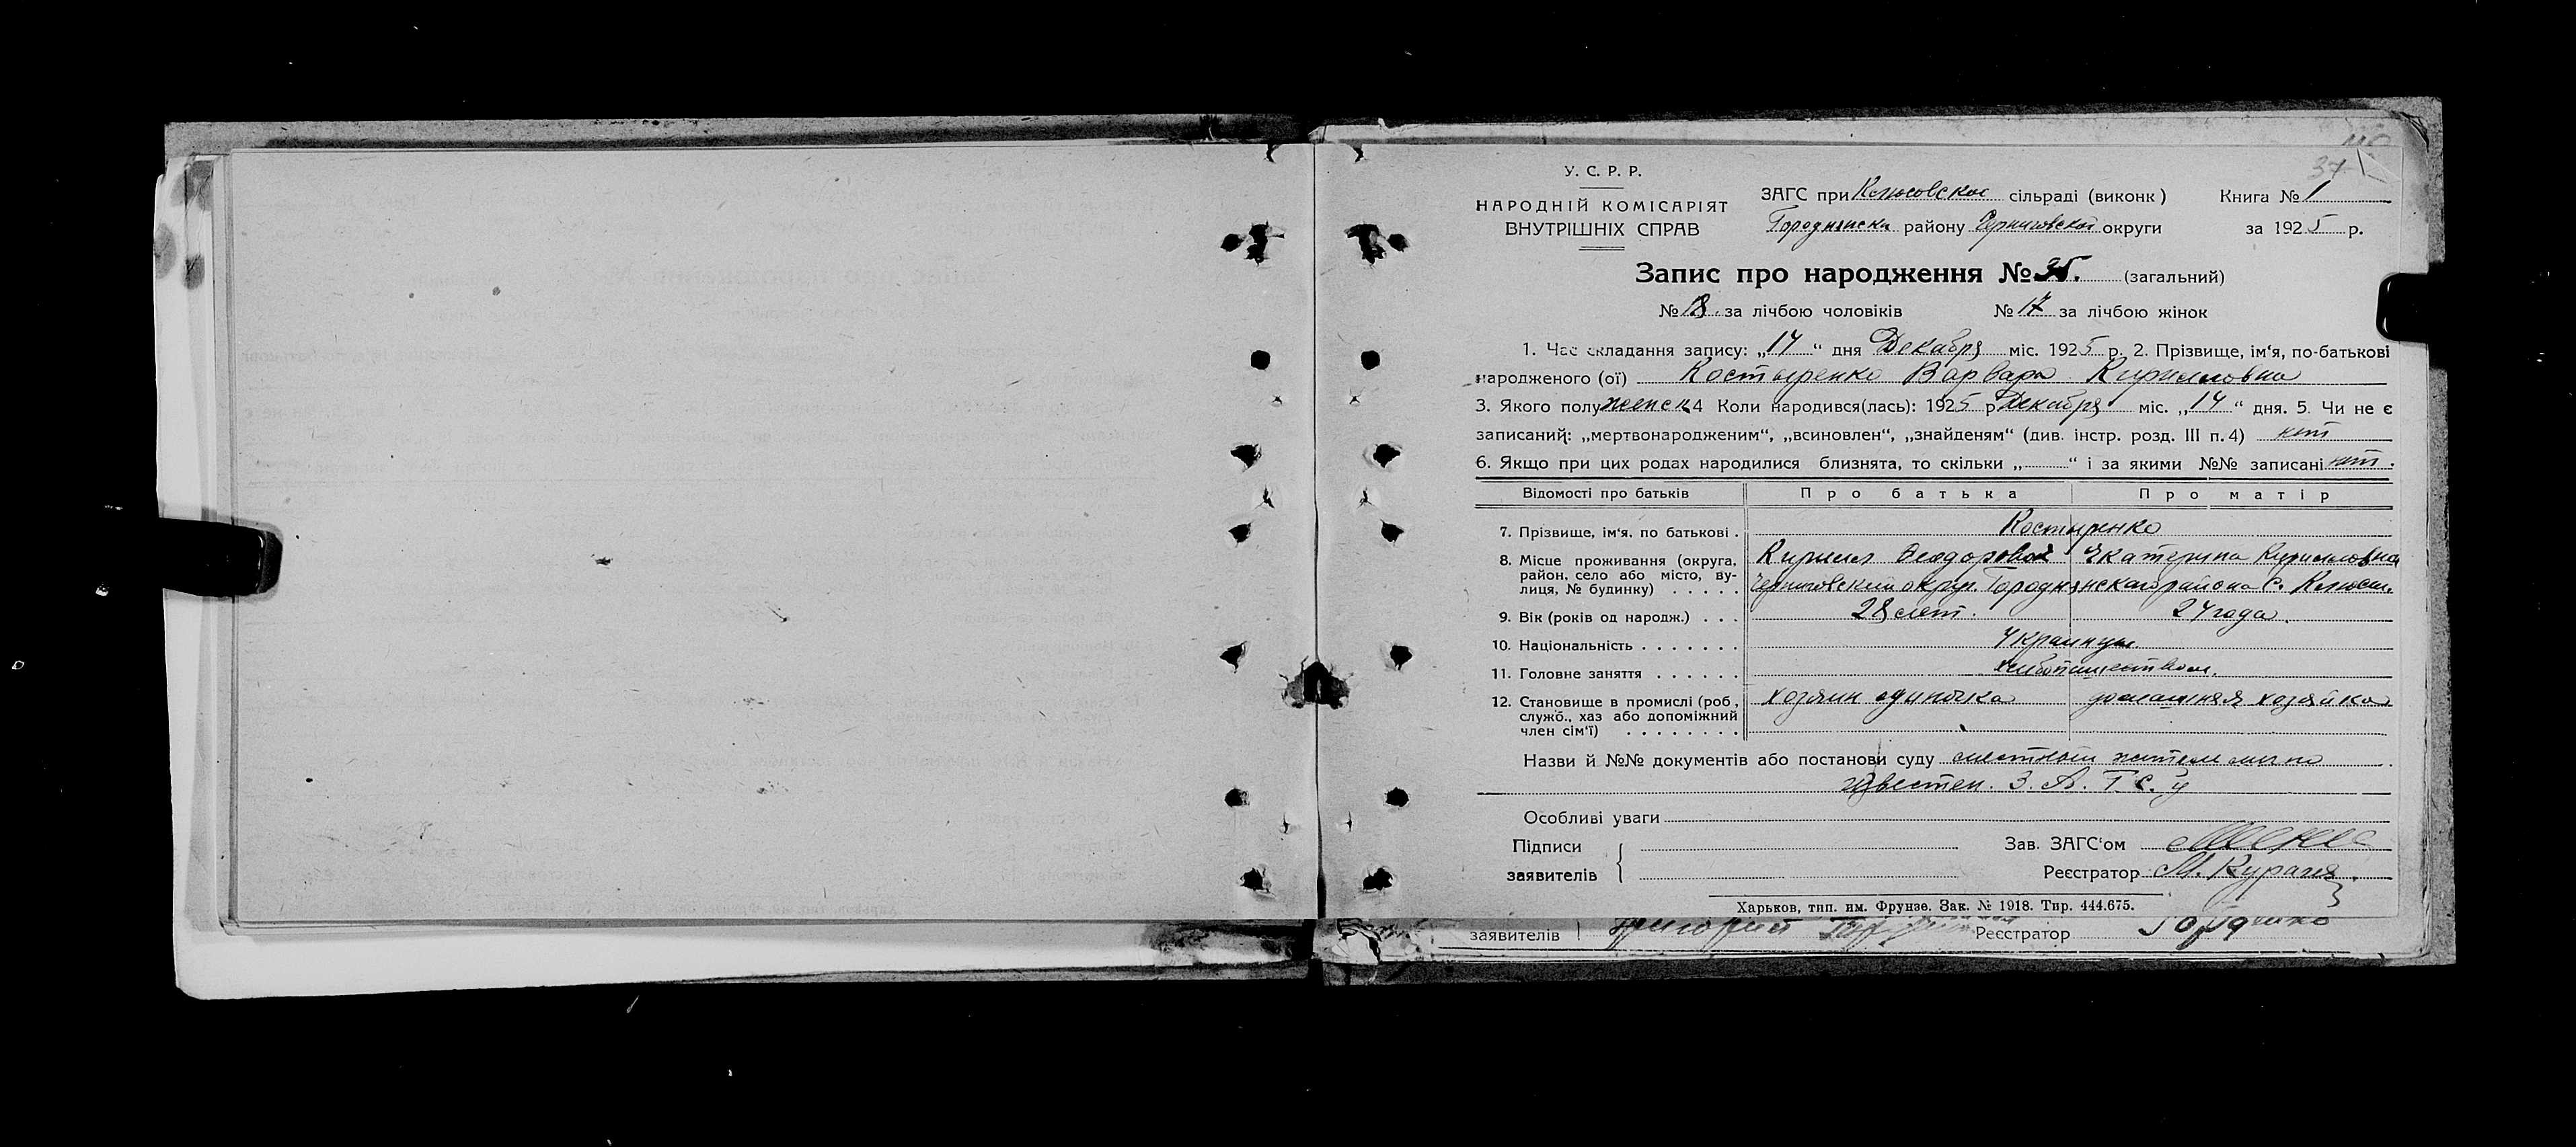 37
У. С. Р. Р.
НАРОДНІЙ КОМІСАРІЯТ
ВНУТРІШНІХ СПРАВ
ЗАГС при Клюсовской сільраді (виконк) Книга № 1
Городнянски району Черниговской округи за 1925 р.
Запис про народження № 35. (загальний)
№ 18. за лічбою чоловіків № 17 за лічбою жінок
1. Час складання запису: „17“ дня Декабря міс. 1925 р. 2. Прізвище, ім‘я, по-батькові
народженого (ої) Костыренко Варвара Кирилловна
3. Якого полу женск 4 Коли народився(лась): 1925 р Декабря міс. „14“ дня. 5. Чи не є
записаний: „мертвонародженим“, „всиновлен“, „знайденям“ (див. інстр. розд. III п. 4) нет
6. Якщо при цих родах народилися близнята, то скільки „ “ і за якими №№ записані нет.
Відомості про батьків Про батька Про матір
7. Прізвище, ім‘я, по батькові . Костыренко
8. Місце проживання (округа, Кирилл Феодорович Екатерина Кирилловна
район, село або місто, ву-
лиця, № будинку) . . . . . Черниговский округ. Городнянскаго района с. Клюсы.
9. Вік (років од народж.) . . . 28 лет. 24 года.
10. Національність . . . . . . . Украинцы
11. Головне заняття . . . . . . хлебопашеством.
12. Становище в промислі (роб, хозяин одиночка домашняя хозяйка
служб., хаз або допоміжний
член сім‘ї) . . . . . . . .
Назви й №№ документів або постанови суду местный житель лично
известен. З. А. Г. С. у
Особливі уваги
Підписи
заявителів
Зав. ЗАГС‘ом
Реєстратор М.
Харьков, тип. им. Фрунзе. Зак. № 1918. Тир. 444.675.
заявителів Григорий Реєстратор